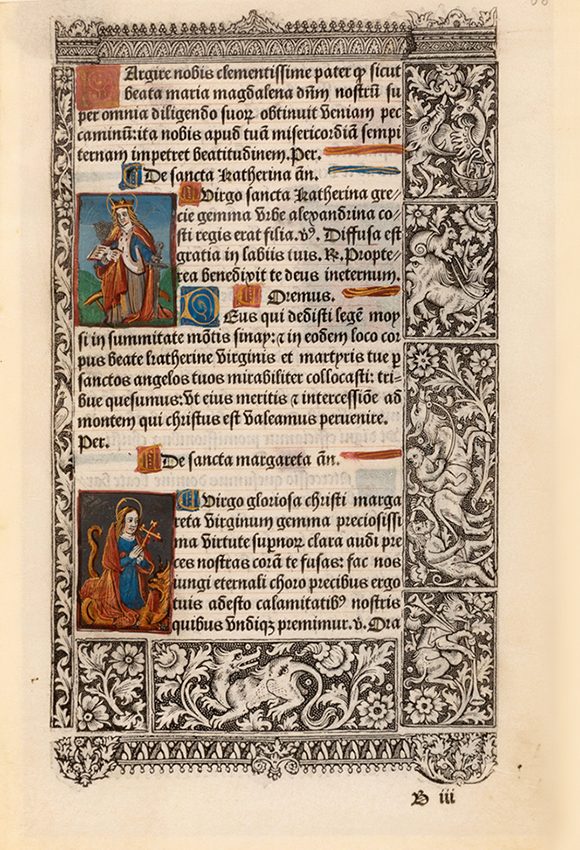 LArgire nobis clementissime pater qȝ sicut
beata maria magdalena dñm nostrũ su
per omnia diligendo suoꝝ obtinuit veniam pec
caminũ: ita nobis apud tuã misericordiã sempi
ternam impetret beatitudinem. Per.
De sancta katherina añ.
Virgo sancta katherina gre/
cie gemma vrbe alexandrina co/
sti regis erat filia. v̾. Diffusa est
gratia in labiis tuis. R. Propte/
rea benedixit te deus ineternum.
Oremus.
DEus qui dedisti legẽ moy
si in summitate mõtis sinay: ⁊ in eodem loco cor
pus beate katherine virginis et martyris tue p
sanctos angelos tuos mirabiliter collocasti: tri/
bue quesumus: vt eius meritis ⁊ intercessiõe ad
montem qui christus est valeamus peruenire.
Per.
De sancta margareta añ.
Virgo gloriosa christi marga
reta virginum gemma preciosissi
ma virtute supnoꝝ clara audi pre
ces nostras corã te fusas: fac nos
iungi eternali choro precibus ergo
tuis adesto calamitatibꝰ nostris
quibus vndiqȝ premimur. v. Ora
B iii